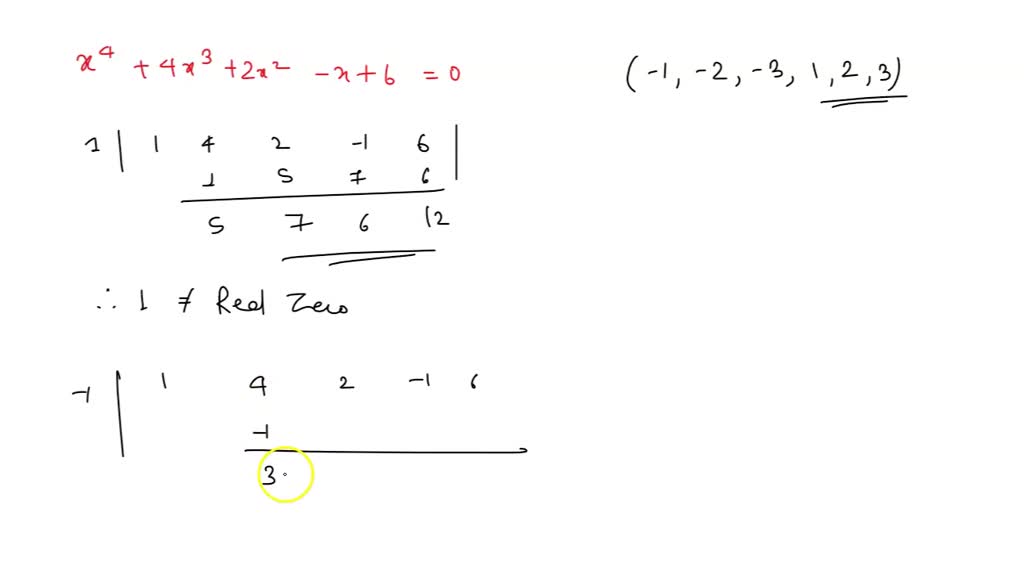 x⁴ + 4x³ + 2x² - x + 6 = 0
(-1, -2, -3, 1, 2, 3)
1 | 1 4 2 -1 6 |
1 5 7 6
5 7 6 12
∴ 1 ≠ Real Zero
-1 | 1 4 2 -1 6
-1
3